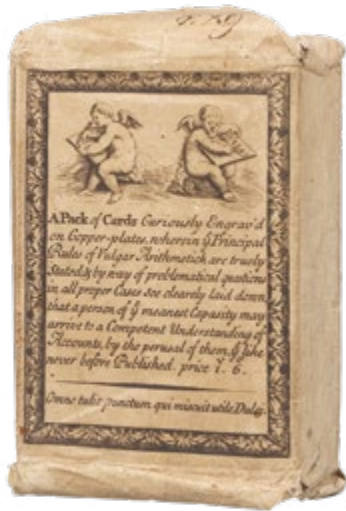 A Pack of Cards Curiously Engrav'd
on Copper-plates, wherein ẙ Principal
Rules of Vulgar Arithmetick are truely
Stated & by way of problematical questions
in all proper Cases soe clearly laid down,
that a person of ẙ meanest Capasity may
arrive to a Competent Understanding of
Accounts, by the perusal of them, ẙ like
never before Published. price 1. 6.
Omne tulit punctum qui miscuit utile Dulci